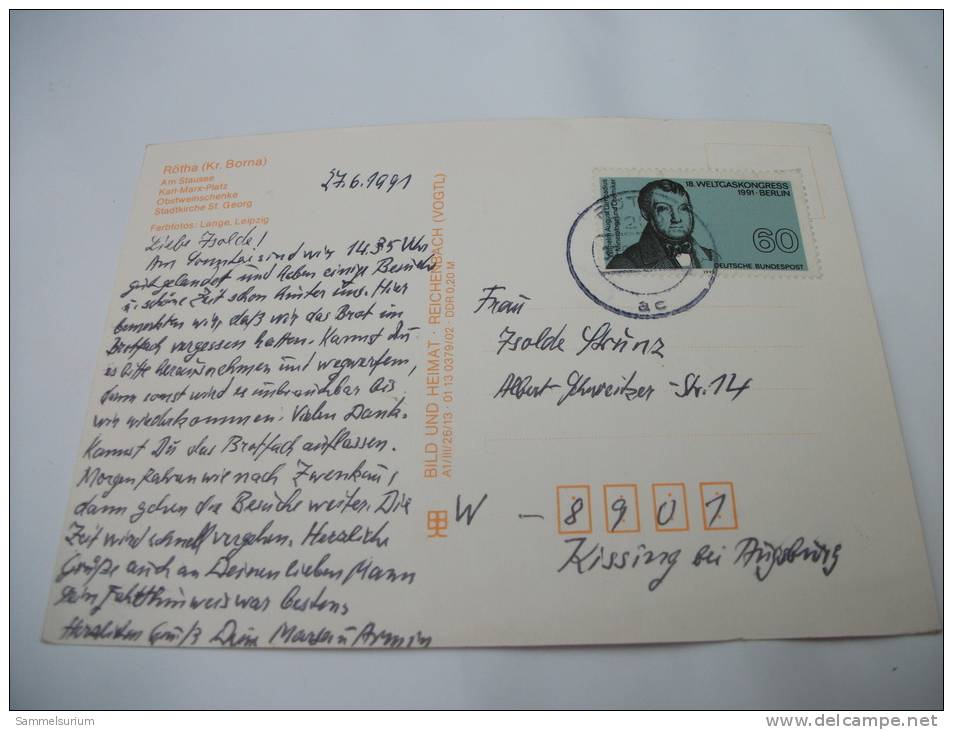 Rötha (Kr. Borna)
Am Stausee
Karl-Marx-Platz
Obstweinschenke
Stadtkirche St. Georg
Farbfotos: Lange, Leipzig
27.6.1991
Liebe Isolde!
Am sind wir 14.35 Uhr
gut gelandet und haben einige Besuche
u. schöne Zeit schon hinter uns. Hier
bemerkten wir, daß wir das Brot im
Brotfach vergessen hatten. Kannst Du
es bitte herausnehmen und wegwerfen,
denn sonst wird es unbrauchbar bis
wir wiederkommen. Vielen Dank.
Kannst Du das Brotfach auflassen.
Morgen fahren wir nach Zwenkau,
dann gehen die Besuche weiter. Die
Zeit wird schnell vergehen. Herzliche
Grüße auch an Deinen lieben Mann
Sein Fahrthinweis war bestens
Herzlichen Gruß Deine u Armin
BILD UND HEIMAT · REICHENBACH (VOGTL)
A1/III/26/13 · 01 13 0379/02 · DDR 0,20 M
18. WELTGASKONGRESS
1991 · BERLIN
Wilhelm August Lampadius
60
DEUTSCHE BUNDESPOST
ac
Frau
Isolde Strunz
Albert-Schweitzer-Str. 14
W - 8901
Kissing bei Augsburg
Sammelsurium
www.delcampe.net